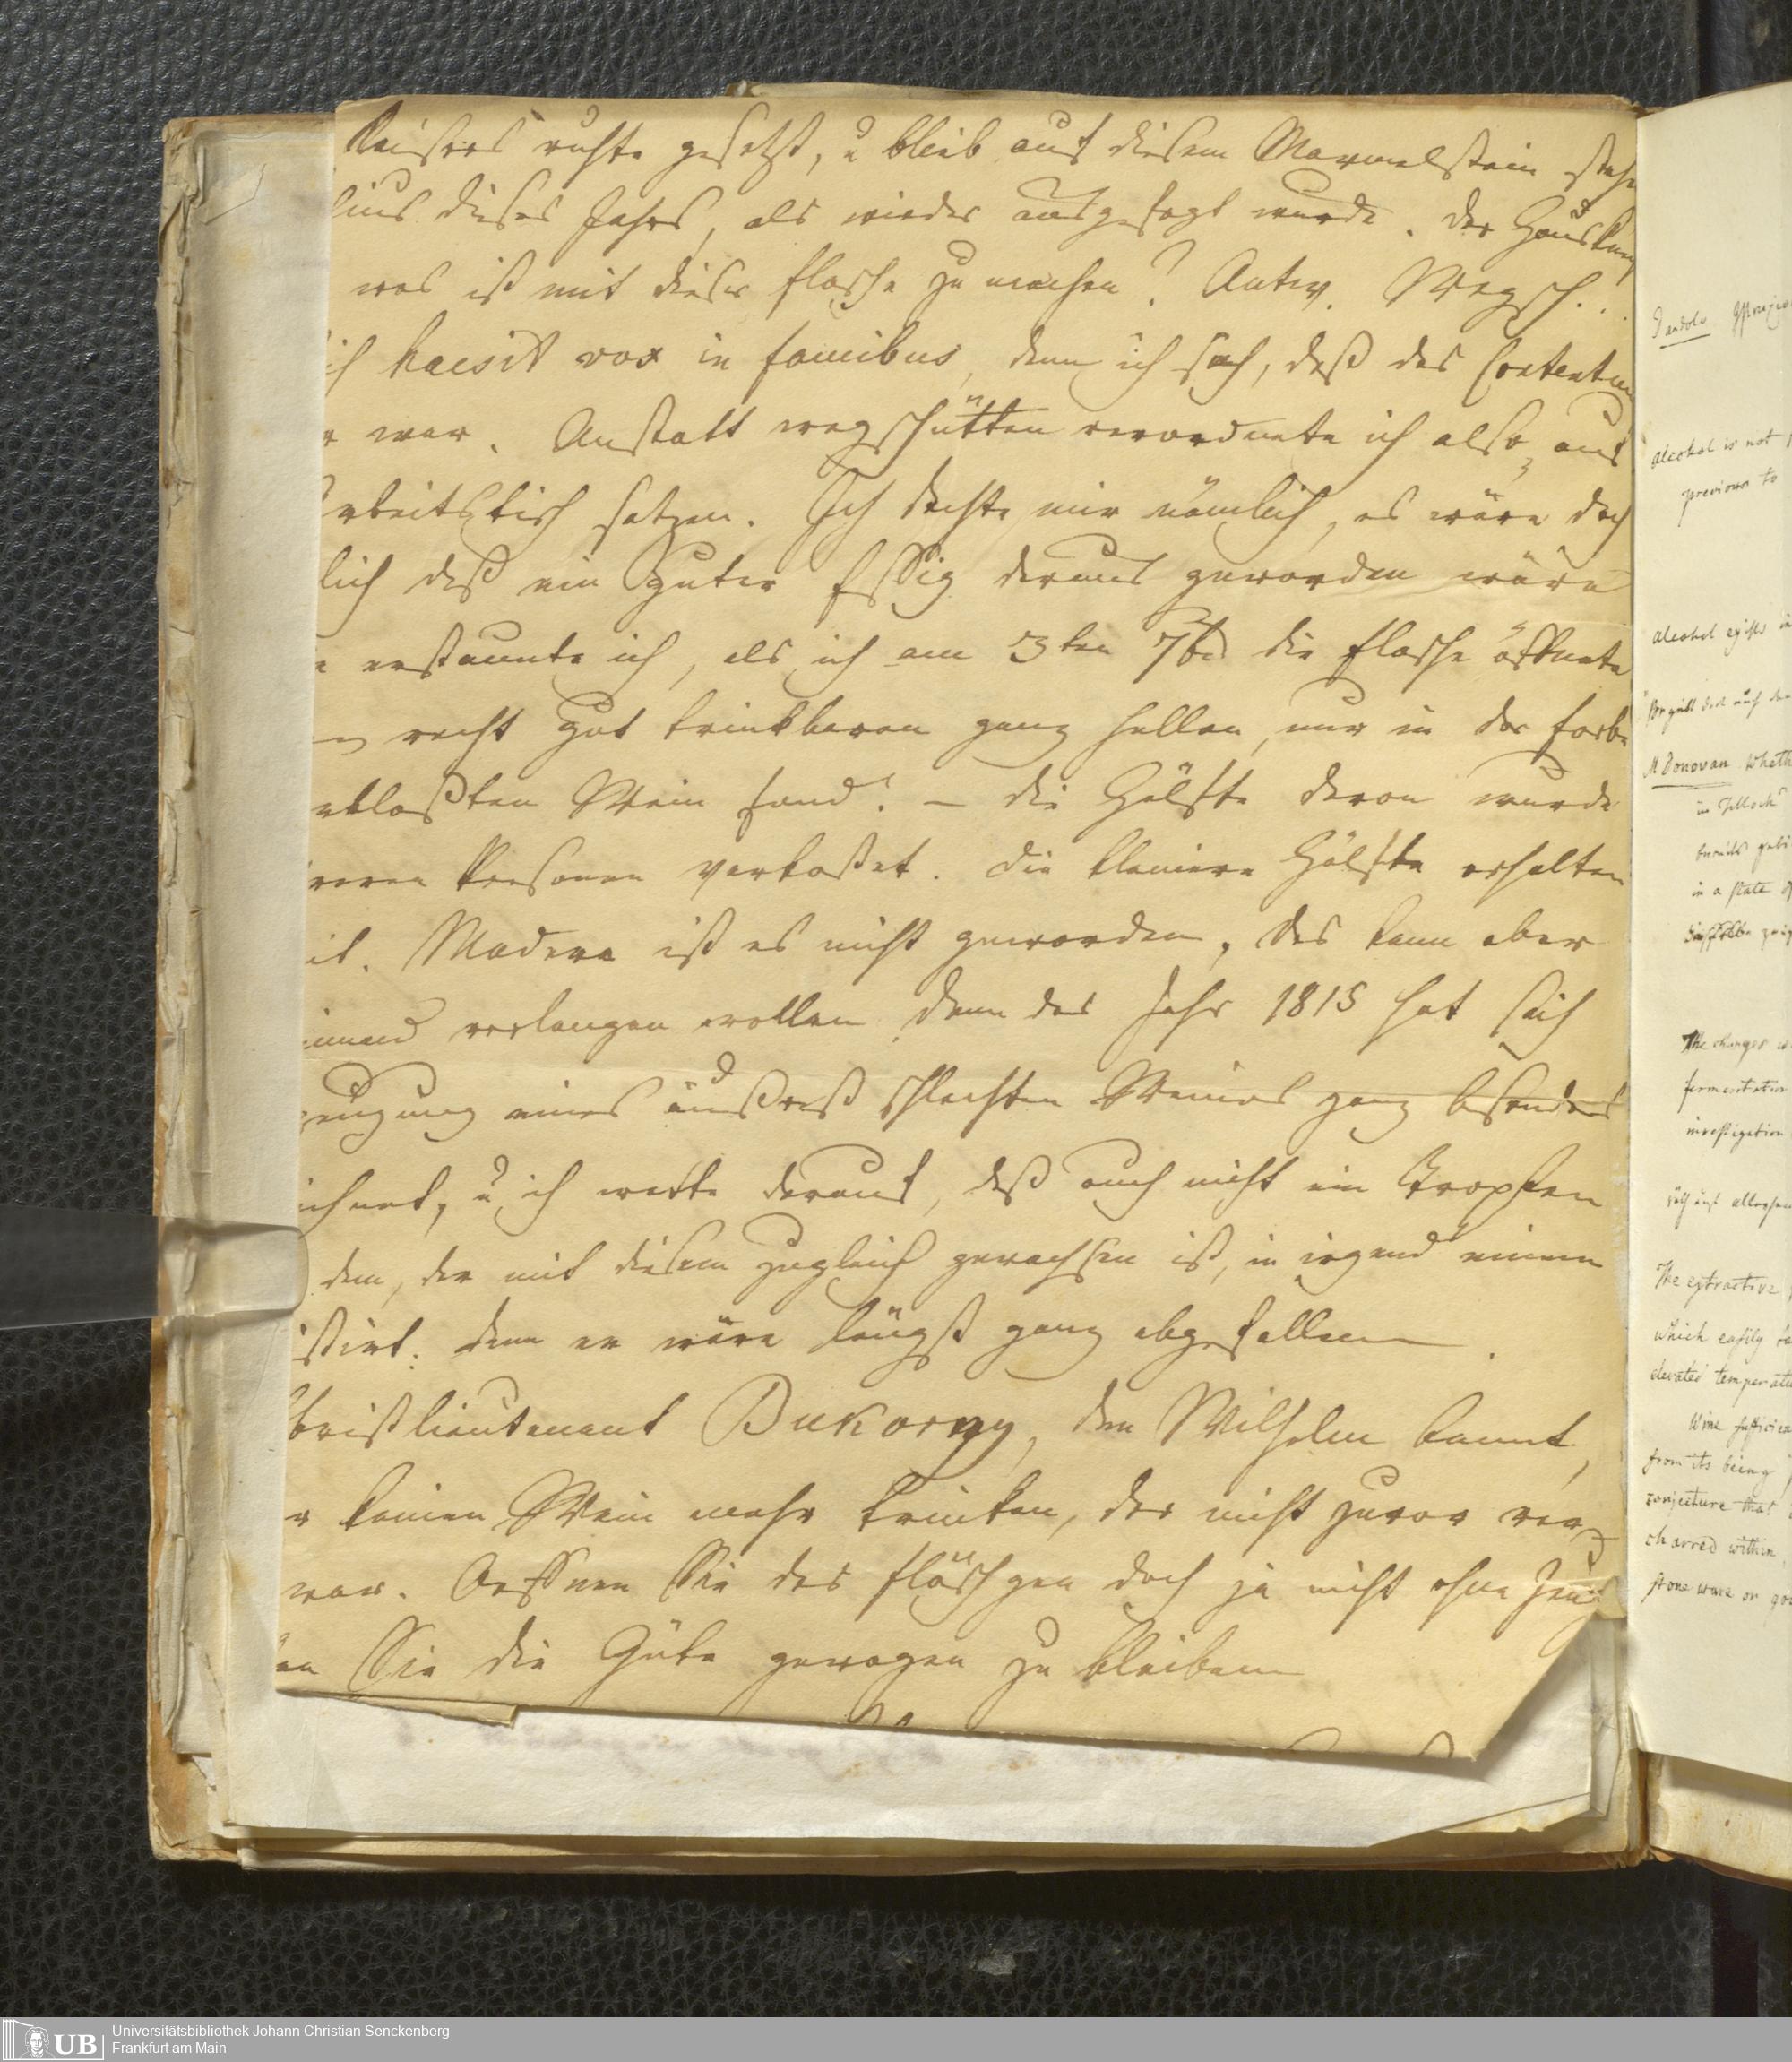 Kaisers ruhte gesetzt, u blieb auf diesem Marmelstein stehn
lius dieses Jahrs, als wieder ausgefegt wurde. Der Hausknecht
was ist mit dieser Flasche zu machen? Antw. Wegsch..
ich haesit vox in faucibus, denn ich sah, daß das Contentum
r war. Anstatt wegschütten verordnete ich also auf
rbeitstisch setzen. Ich dachte mir nämlich, es wäre doch
lich daß ein Guter Essig daraus geworden wäre
e erstaunte ich, als ich am 3ten 7br die Flasche öffnete
n recht gut trinkbaren ganz hellen, nur in der Farbe
rblaßten Wein fand! – die Hälfte davon wurde
reren Personen verkostet. die kleinere Hälfte erhalten
it. Madera ist es nicht geworden, das kann aber
iemand verlangen wollen denn das Jahr 1815 hat sich
zeugung eines äußerst schlechten Weines ganz besonders
ichnet, u, ich wette darauf, daß auch nicht ein Tropfen
dem, der mit diesem zugleich gewachsen ist, in irgend einem
istirt. denn er wäre längst ganz abgefallen.
bristlieutenant Bukorny, den Wilhelm kennt,
r keinen Wein mehr trinken, der nicht zuvor ver
war. Oeffnen Sie das Fläschgen doch ja nicht ohne Zeug
en Sie die Güte gewogen zu bleiben
Dandolo
alcohol is not
previous to
alcohol exists in
M Donovan Wheth
in a state of
The changes
fermentation
investigation
The extractive
which easily
elevated temperatu
Wine
from its being
conjecture that
charred within,
stone ware or
UB
Universitätsbibliothek Johann Christian Senckenberg
Frankfurt am Main